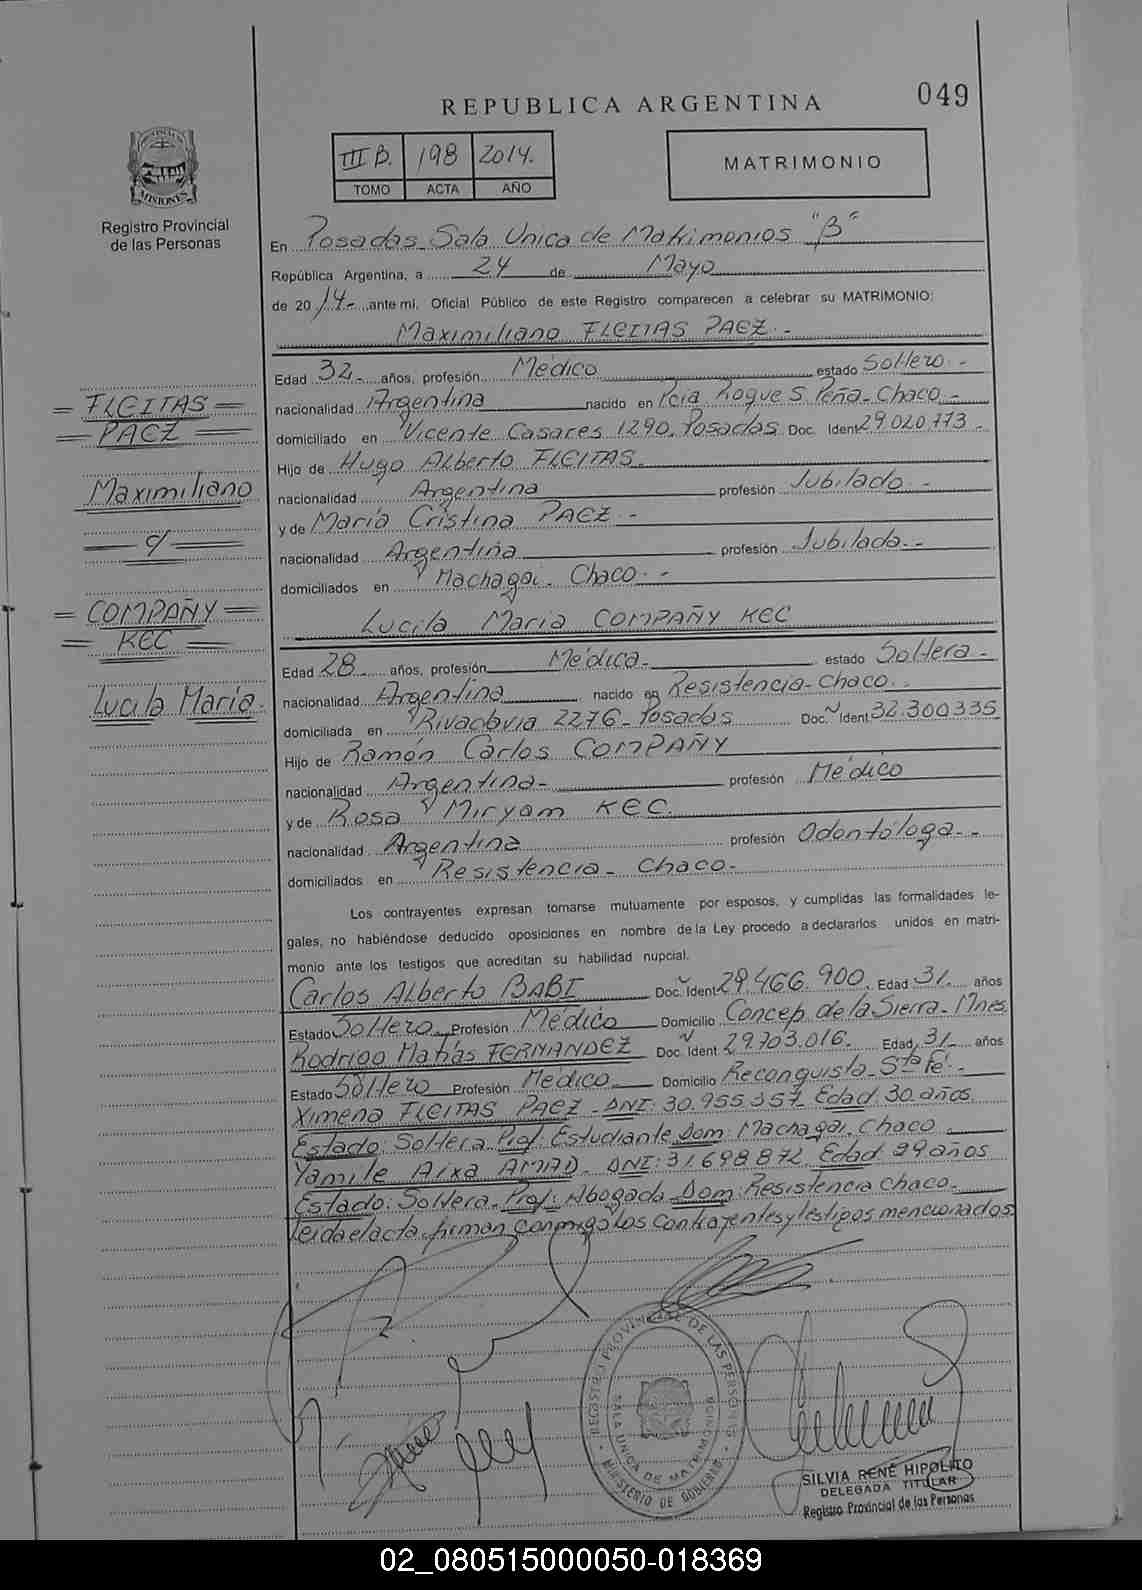 REPUBLICA ARGENTINA
049
III B. 198 2014.
TOMO ACTA AÑO
MATRIMONIO
MISIONES
Registro Provincial
de las Personas
En Posadas Sala Unica de Matrimonios "B"
República Argentina, a 24 de Mayo
de 20 14- ante mi, Oficial Público de este Registro comparecen a celebrar su MATRIMONIO:
Maximiliano FLEITAS PAEZ -
Edad 32 años, profesión Médico estado Soltero -
nacionalidad Argentina nacido en Pcia Roque S. Peña- Chaco -
domiciliado en Vicente Casares 1290. Posadas Doc. Ident 29.020.773 -
Hijo de Hugo Alberto FLEITAS.
nacionalidad Argentina profesión Jubilado -
y de María Cristina PAEZ -
nacionalidad Argentina profesión Jubilada -
domiciliados en Machagai. Chaco -
Lucila Maria COMPAÑY KEC
Edad 28 años, profesión Médica - estado Soltera -
nacionalidad Argentina nacido en Resistencia- Chaco.
domiciliada en Rivadavia 2276- Posadas Doc. Ident 32.300335
Hijo de Ramón Carlos COMPAÑY
nacionalidad Argentina- profesión Médico
y de Rosa Miryam KEC.
nacionalidad Argentina profesión Odontóloga -
domiciliados en Resistencia- Chaco -
= FLEITAS =
= PAEZ =
Maximiliano
= c/ =
= COMPAÑY =
= KEC =
Lucila María.
Los contrayentes expresan tomarse mutuamente por esposos, y cumplidas las formalidades le-
gales, no habiéndose deducido oposiciones en nombre de la Ley procedo a declararlos unidos en matri-
monio ante los testigos que acreditan su habilidad nupcial.
Carlos Alberto BABI Doc. Ident 29.466.900. Edad 31. años
Estado Soltero Profesión Médico Domicilio Concep. de la Sierra- Mnes.
Rodrigo Matías FERNANDEZ Doc. Ident 29.703.016. Edad 31 años
Estado Soltero Profesión Médico Domicilio Reconquista- Sta Fé -
Ximena FLEITAS PAEZ - DNI: 30.955.357 Edad: 30 años
Estado: Soltera. Prof: Estudiante Dom: Machagai. Chaco
Yamile Aixa AMAD - DNI: 31.698.872 Edad: 29 años
Estado: Soltera. Prof: Abogada Dom: Resistencia Chaco.
leida el acta, firman conmigo los contrayentes y testigos mencionados
REGISTRO PROVINCIAL DE LAS PERSONAS
SALA UNICA DE MATRIMONIOS
MINISTERIO DE GOBIERNO
SILVIA RENÉ HIPOLITO
DELEGADA TITULAR
Registro Provincial de las Personas
02_080515000050-018369